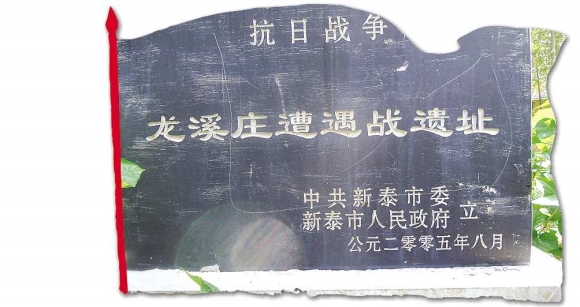 抗日战争
龙溪庄遭遇战遗址
中共新泰市委
新泰市人民政府 立
公元二零零五年八月